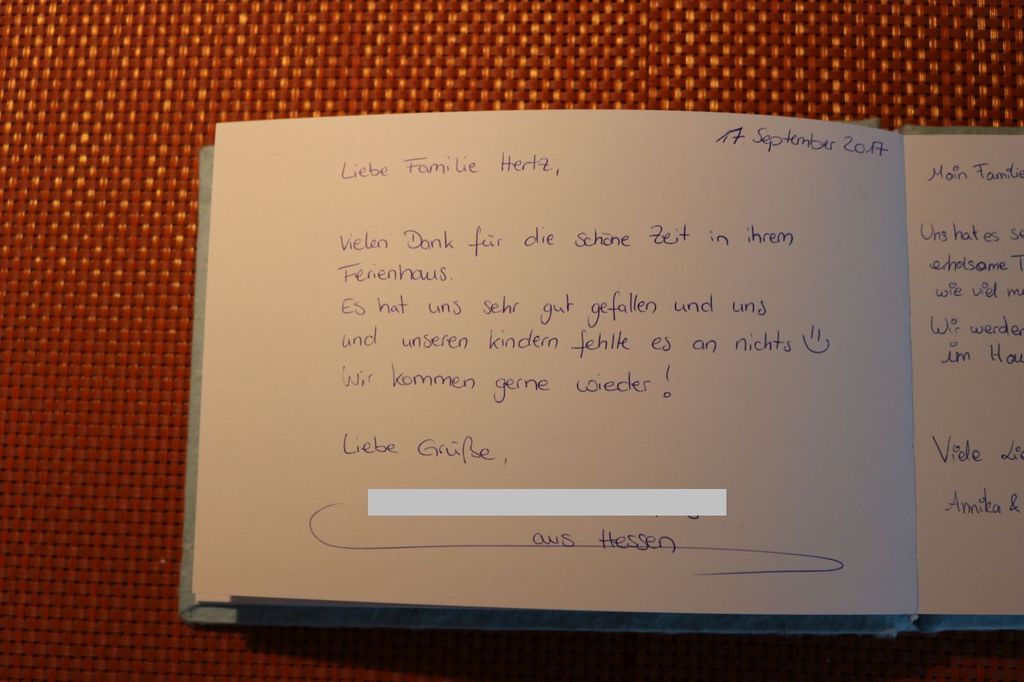 17. September 2017
Liebe Familie Hertz,
Vielen Dank für die schöne Zeit in ihrem
Ferienhaus.
Es hat uns sehr gut gefallen und uns
und unseren kindern fehlte es an nichts
Wir kommen gerne wieder!
Liebe Grüße,
aus Hessen
Moin Familie
Uns hat es
erholsame
wie viel
Wir werden
im
Viele
Annika &